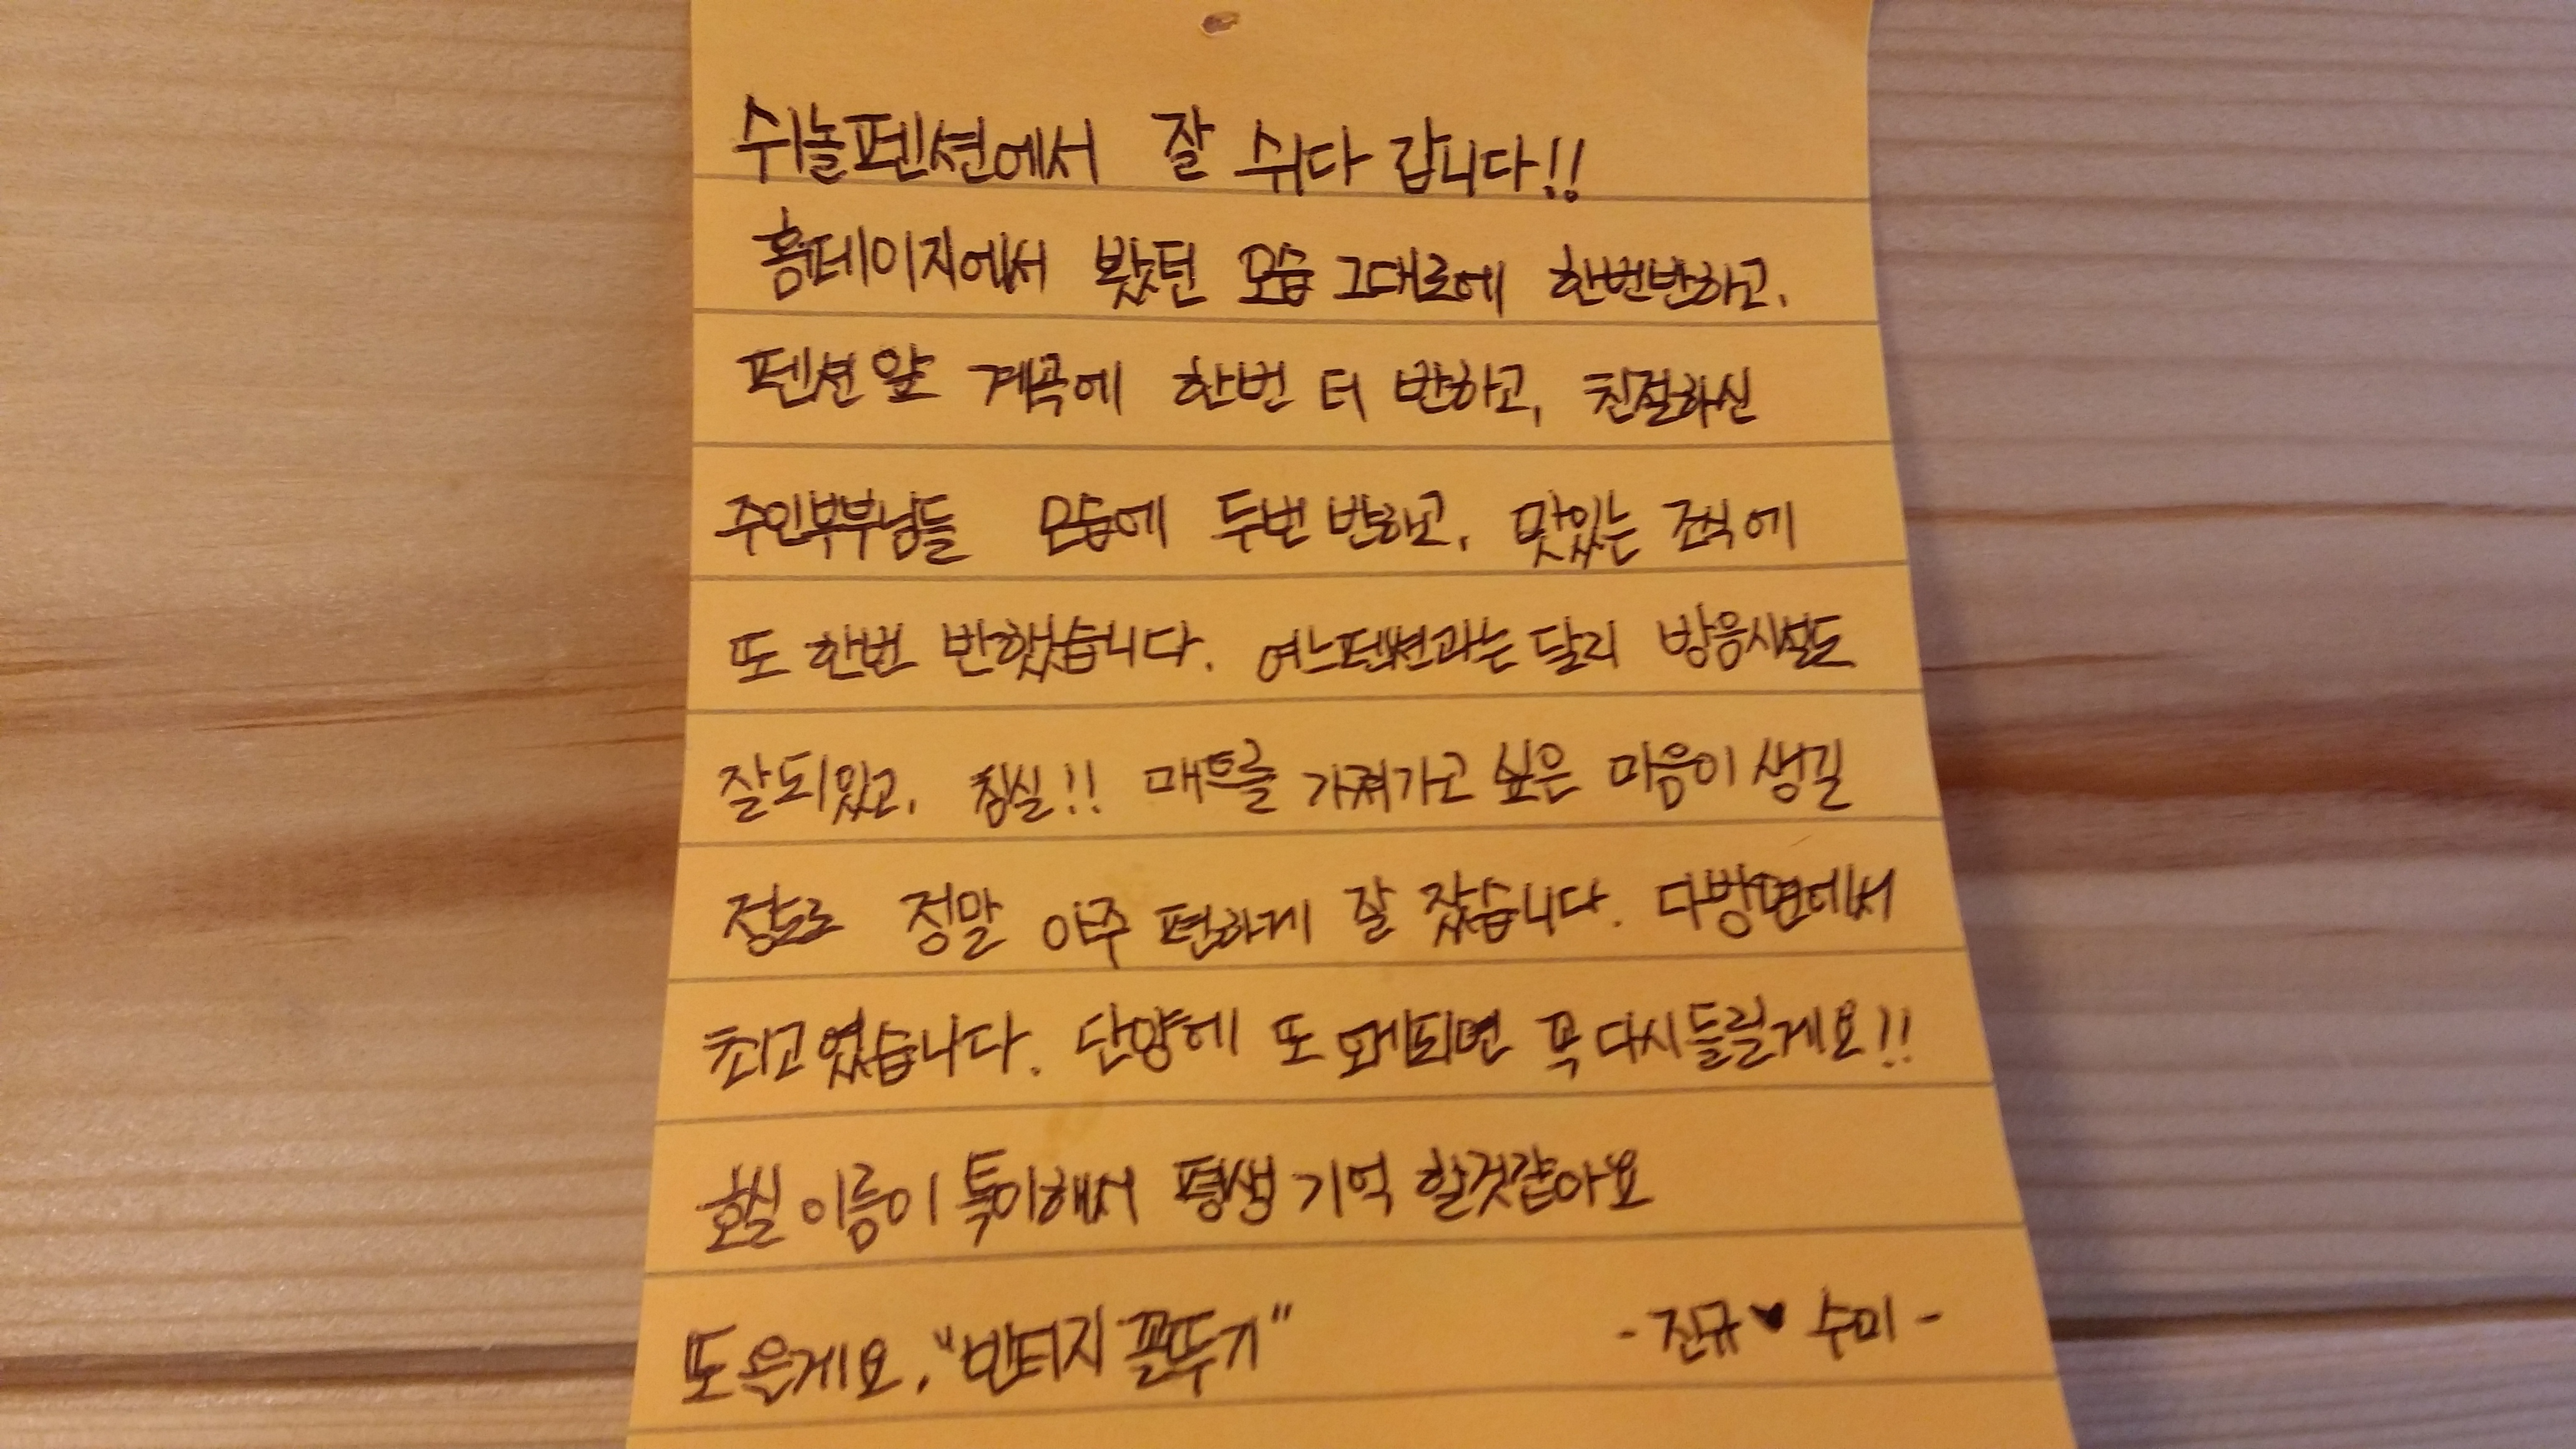 쉬놀펜션에서 잘 쉬다 갑니다!!
홈페이지에서 봤던 모습 그대로에 한번반하고,
펜션앞 계곡에 한번 더 반하고, 친절하신
주인부부님들 모습에 두번 반하고, 맛있는 조식에
또 한번 반했습니다. 여느펜션과는 달리 방음시설도
잘되있고, 침실!! 매트를 가져가고 싶은 마음이 생길
정도로 정말 아주 편하게 잘 잤습니다. 다방면에서
최고였습니다. 단양에 또 오게되면 꼭 다시들릴게요!!
호실 이름이 특이해서 평생 기억 할것같아요
또 올게요. "빈티지 꼴뚜기" -진규♥ 수미-